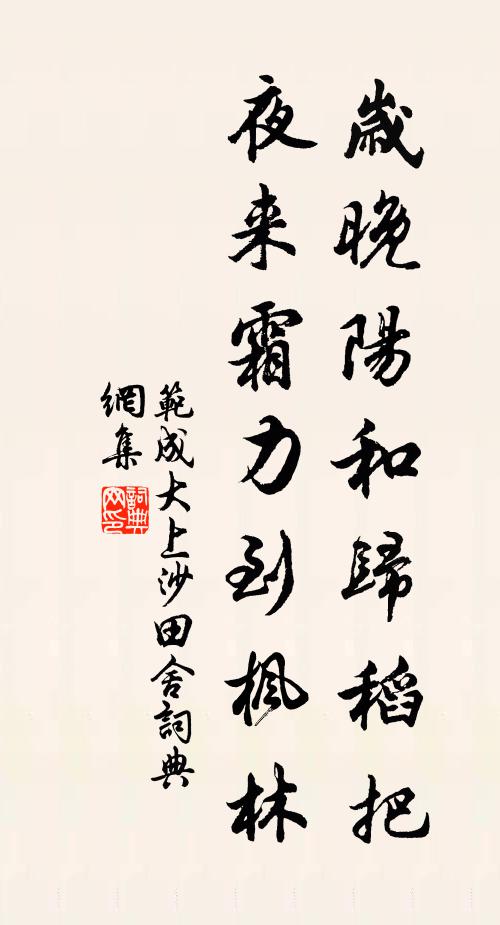 歲晚陽和歸稻把
夜来霜力到楓林
範成大上沙田舍詞典
網集
詞典
网印